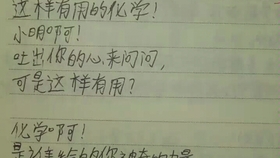 这样有用的化学!
小明啊!
吐出你的心,来问问,
可是这样有用?
化学啊!